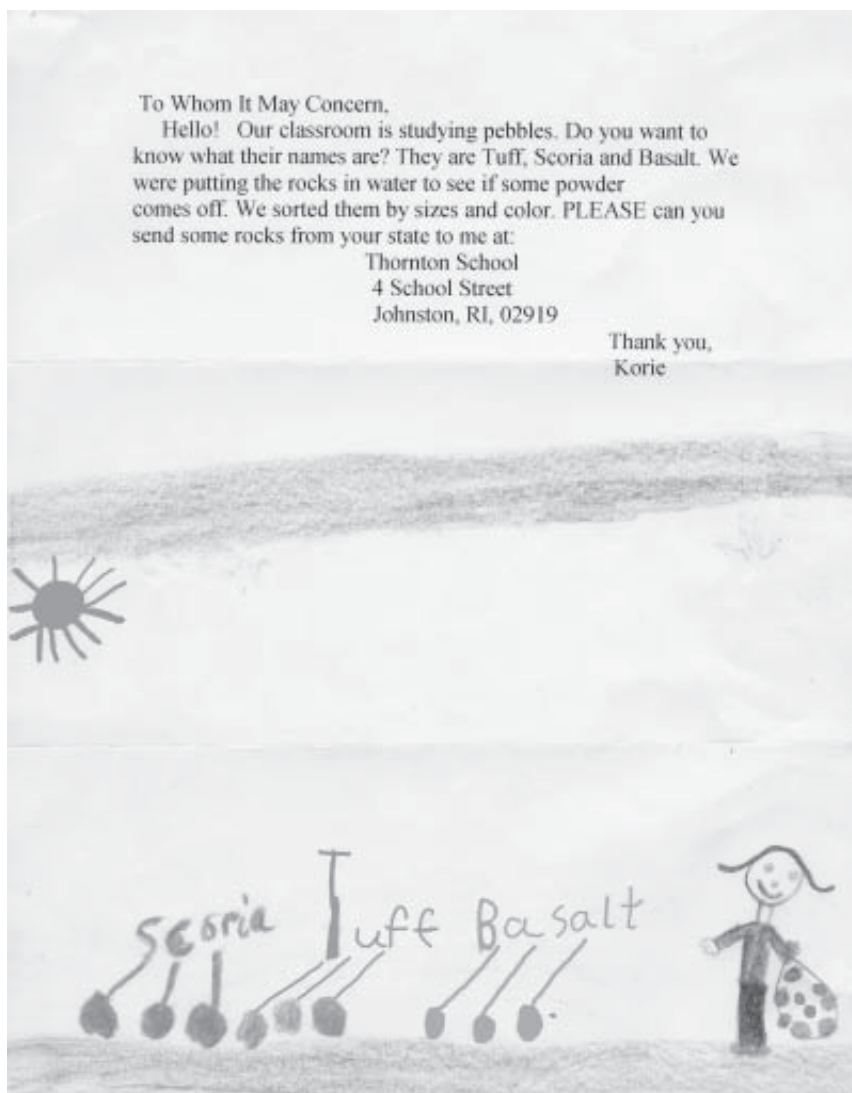 To Whom It May Concern,
Hello! Our classroom is studying pebbles. Do you want to
know what their names are? They are Tuff, Scoria and Basalt. We
were putting the rocks in water to see if some powder
comes off. We sorted them by sizes and color. PLEASE can you
send some rocks from your state to me at:
Thornton School
4 School Street
Johnston, RI, 02919
Thank you,
Korie
Scoria Tuff Basalt